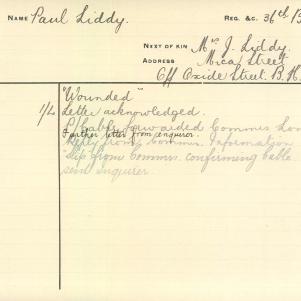 NAME Paul Liddy. REG. &C. 36th B
NEXT OF KIN Mrs J. Liddy.
ADDRESS Mica Street
Off Oxide Street. B.H.
"Wounded"
1/L Letter acknowledged.
Cable forwarded Commrs Lon
Further letter from enquirer.
Reply from Commrs. Information
slip from Commrs. confirming cable
seen enquirer.